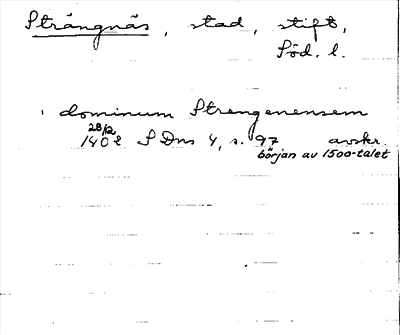 Strängnäs, stad, stift,
Söd. l.
dominum Strengenensem
28/2
1402 SDns 4, s. 97 avskr.
början av 1500-talet